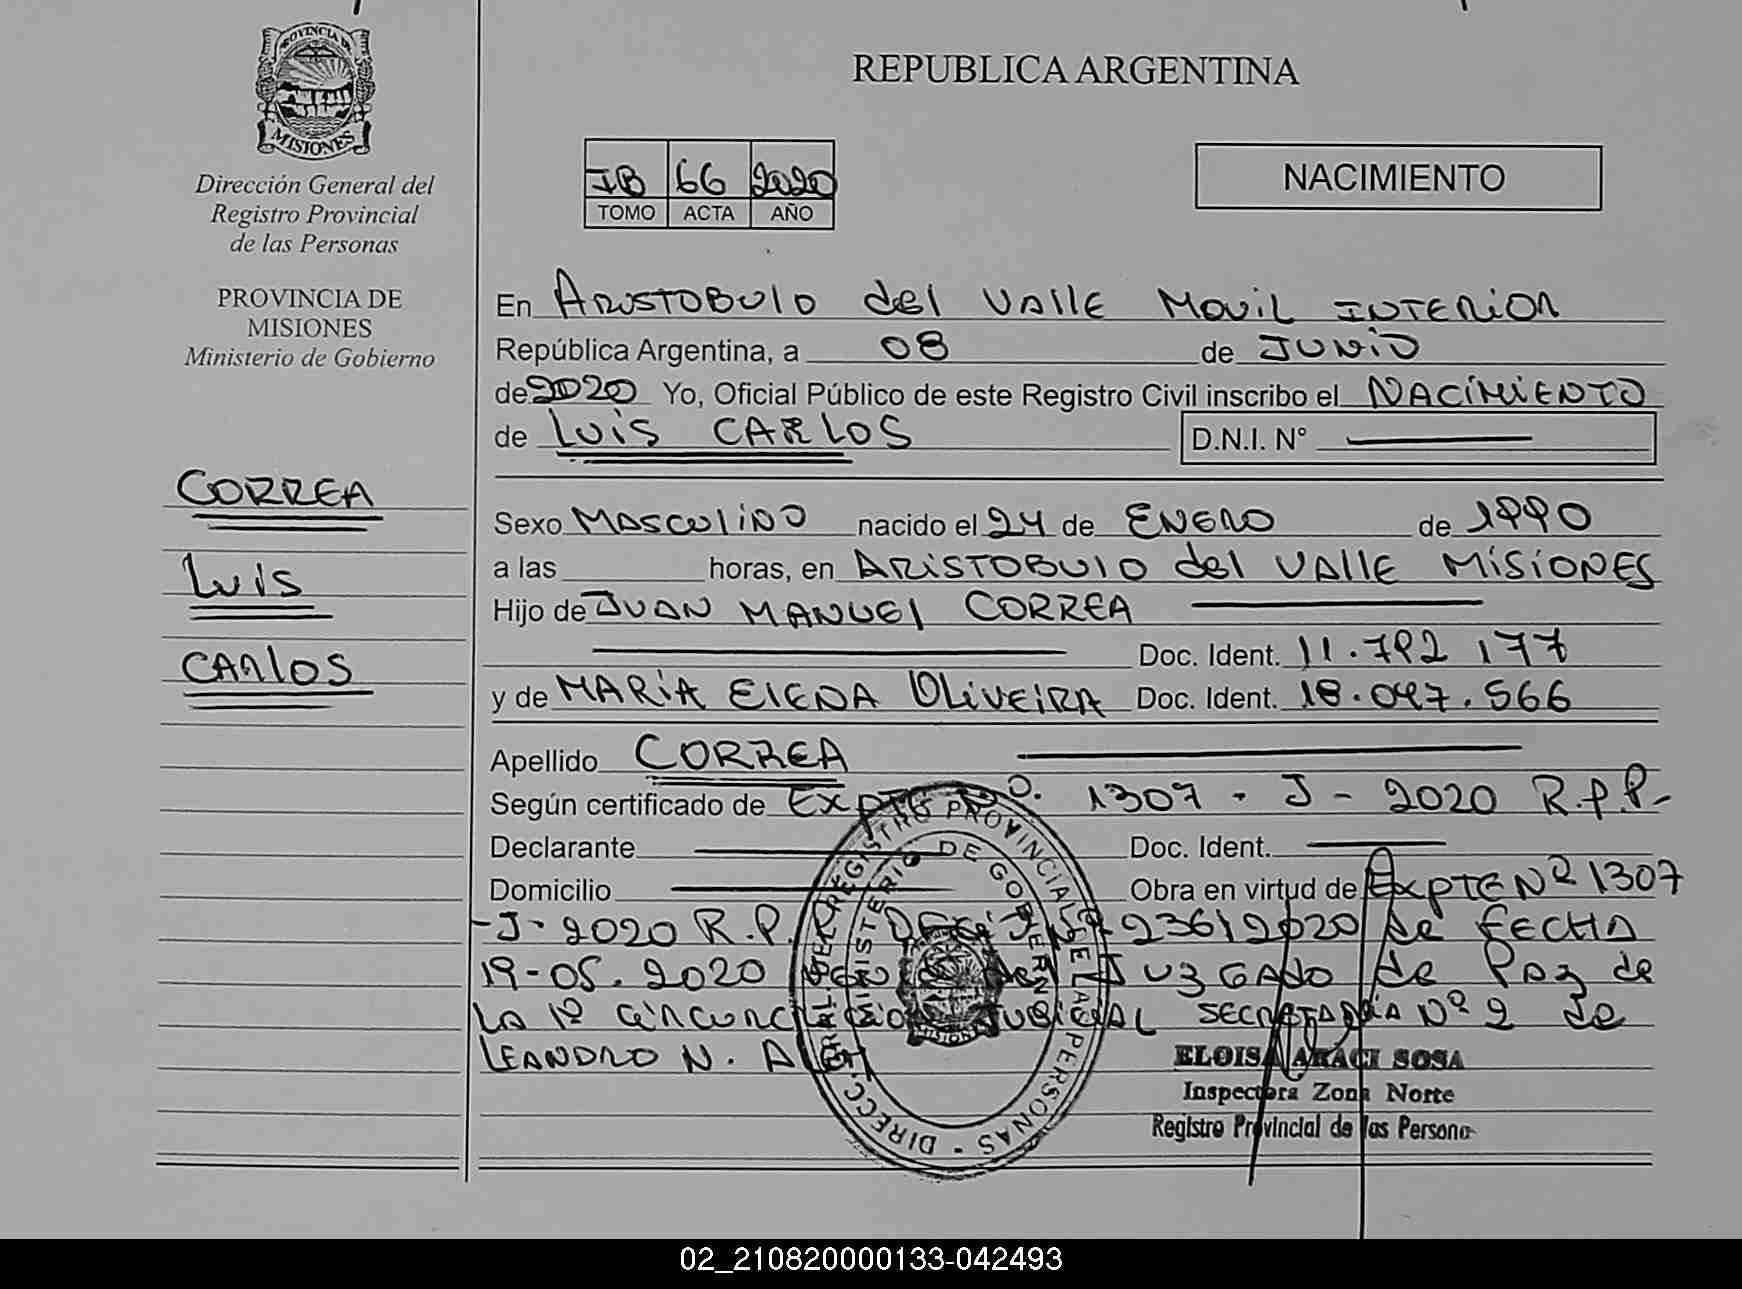 PROVINCIA DE
MISIONES
Dirección General del
Registro Provincial
de las Personas
PROVINCIA DE
MISIONES
Ministerio de Gobierno
CORREA
LUIS
CARLOS
REPUBLICA ARGENTINA
IB 66 2020
TOMO ACTA AÑO
NACIMIENTO
En ARISTOBULO del VALLE MOVIL INTERIOR
República Argentina, a 08 de JUNIO
de 2020 Yo, Oficial Público de este Registro Civil inscribo el NACIMIENTO
de LUIS CARLOS D.N.I. N°
Sexo MASCULINO nacido el 24 de ENERO de 1990
a las horas, en ARISTOBULO del VALLE MISIONES
Hijo de JUAN MANUEL CORREA
Doc. Ident. 11.792 177
y de MARIA ELENA OLIVEIRA Doc. Ident. 18.047.566
Apellido CORREA
Según certificado de Expte 1307 - J - 2020 R.P.P-
Declarante Doc. Ident.
Domicilio Obra en virtud de Expte Nº 1307
-J-2020 R.P.P. 236/2020 de FECHA
19-05.2020 JUZGADO de PAZ de
LA 1º JUDICIAL SECRETARIA Nº 2 de
LEANDRO N. ALEM
DIRECC. GRAL. DEL REGISTRO PROVINCIAL DE LAS PERSONAS -
MINISTERIO DE GOBIERNO
MISIONES
ELOISA ARACI SOSA
Inspectora Zona Norte
Registro Provincial de las Persona
02_210820000133-042493